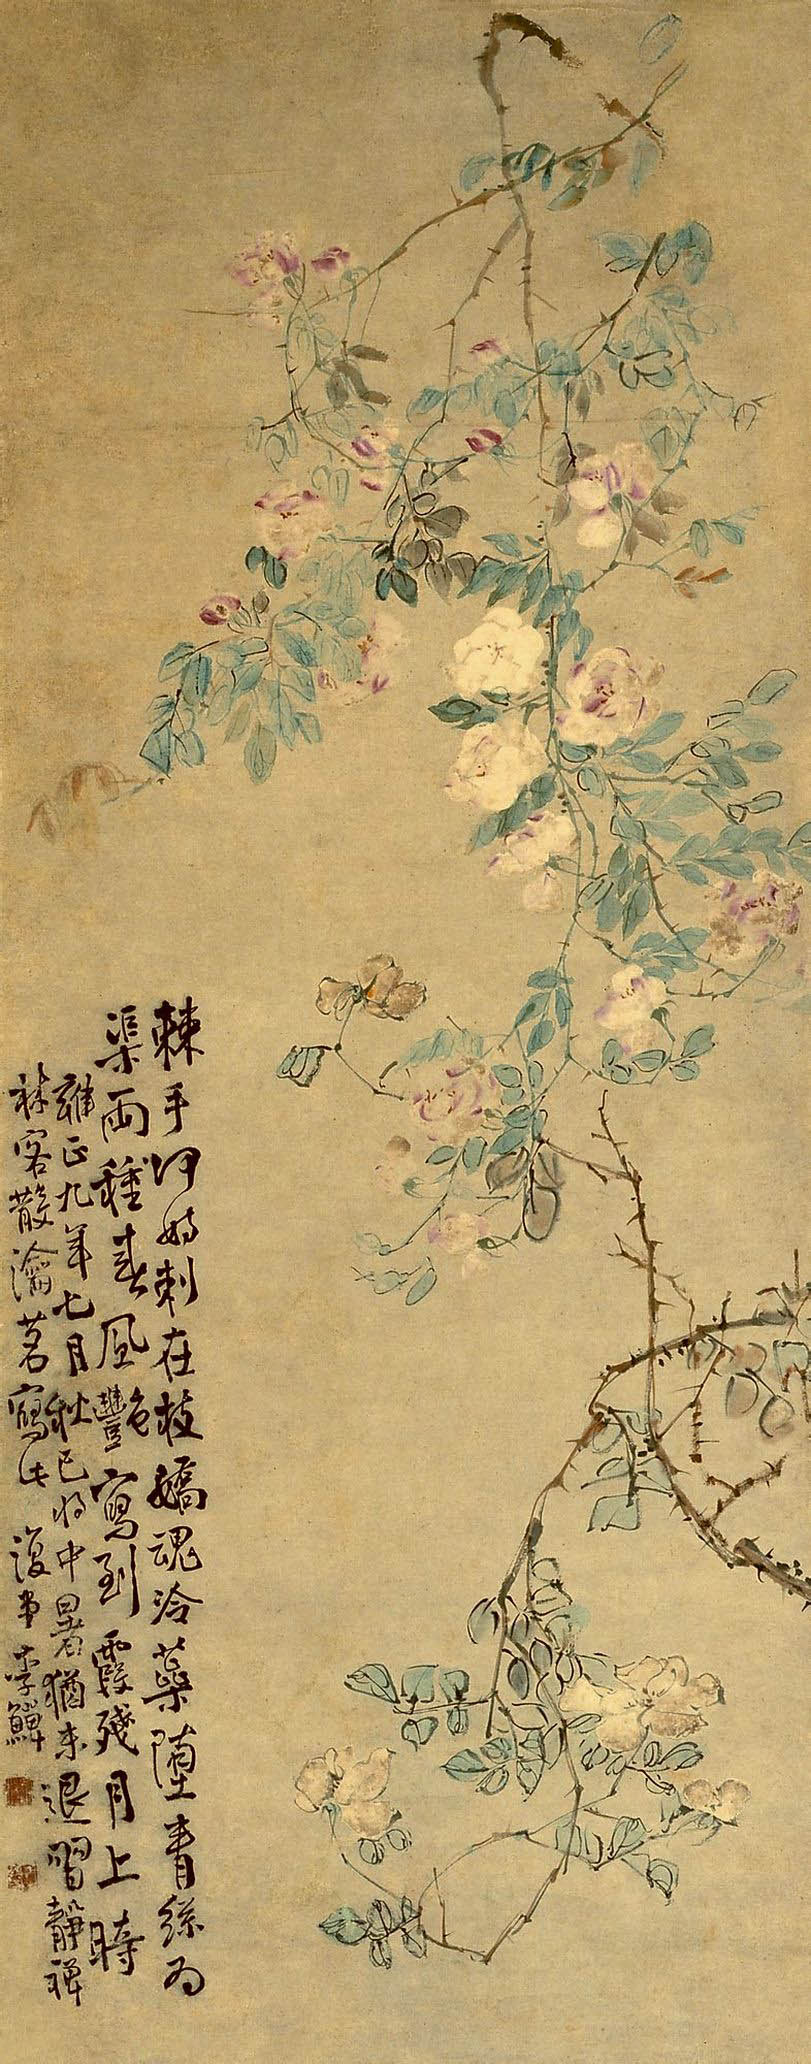 棘手何妨刺在枝嬌魂冷藥墮青絲為
渠兩種春風艷寫到霞殘月上時
雍正九年七月秋已將中暑猶未退習靜禪
林客散瀹茗寫此復堂李鱓